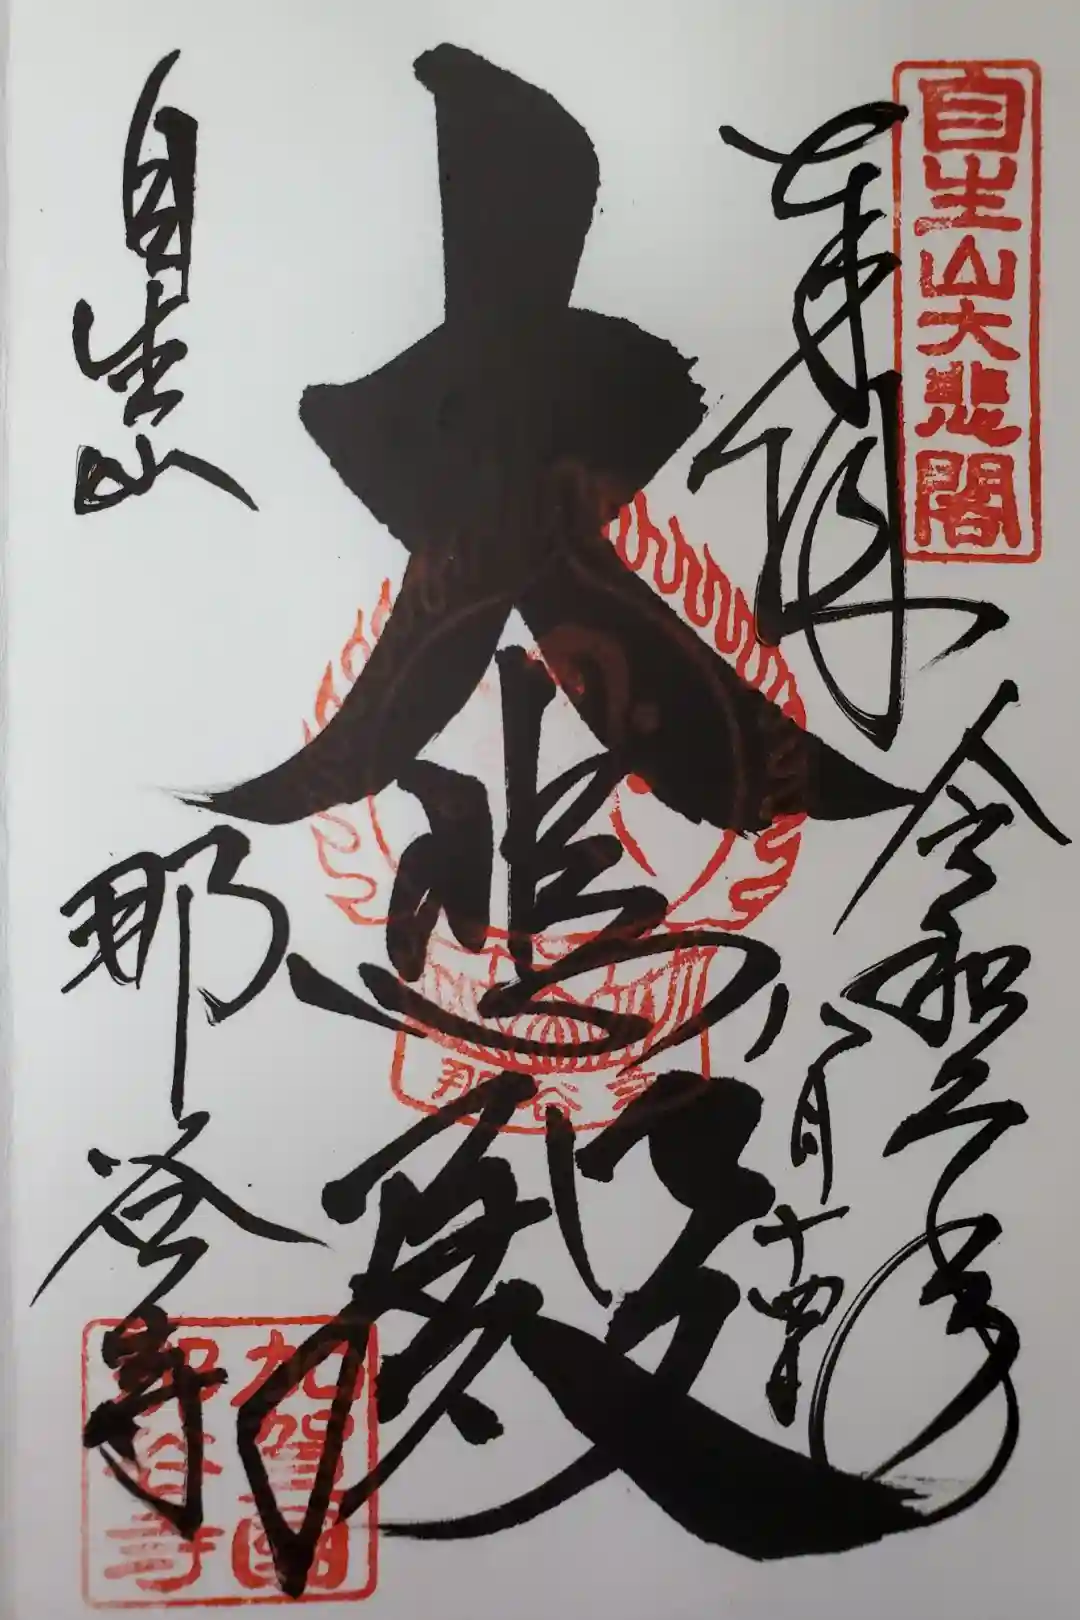 自生山大悲閣
奉拝
令和三年
八月十四日
大悲殿
那谷寺
自生山
那谷寺
加賀國
那谷寺